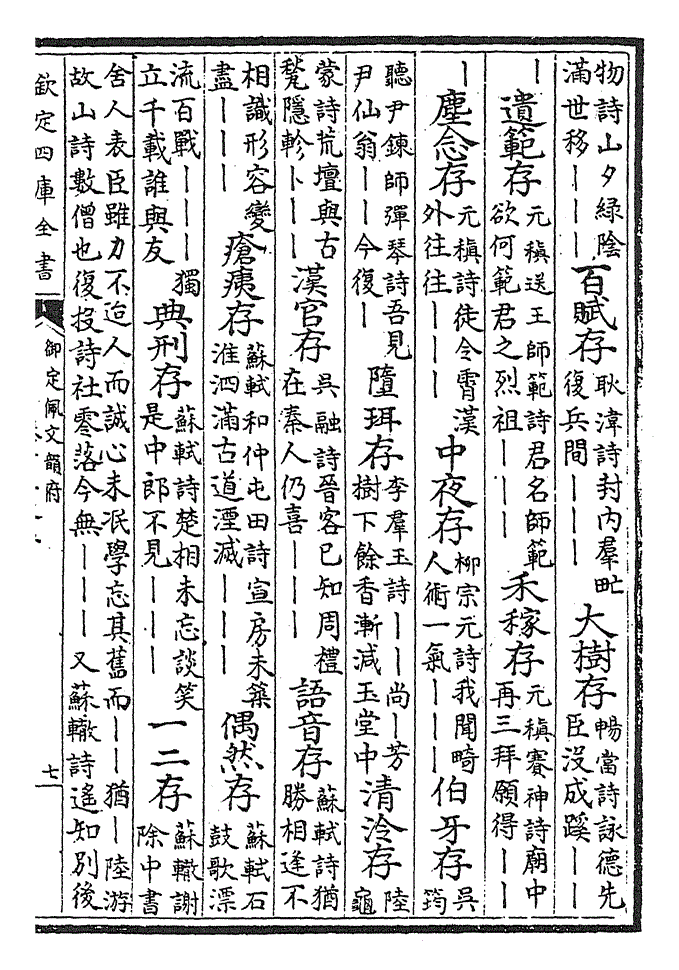 物詩山夕綠陰
滿世移｜｜｜
百賦存
耿湋詩封内羣甿
復兵間｜｜｜
大樹存
暢當詩詠德先
臣没成蹊｜｜
｜
遺範存
元稹送王師範詩君名師範
欲何範君之烈祖｜｜｜
禾稼存
元稹賽神詩廟中
再三拜願得｜｜
｜
塵念存
元稹詩徒令霄漢
外往往｜｜｜
中夜存
柳宗元詩我聞畸
人術一氣｜｜｜
伯牙存
吳
筠
聽尹鍊師彈琴詩吾見
尹仙翁｜｜今復｜
墮珥存
李羣玉詩｜｜尚｜芳
樹下餘香漸減玉堂中
清泠存
陸
龜
蒙詩荒壇與古
甃隱軫卜｜｜｜
漢官存
吳融詩晉客已知周禮
在秦人仍喜｜｜｜
語音存
蘇軾詩猶
勝相逢不
相識形容變
盡｜｜｜
瘡痍存
蘇軾和仲屯田詩宣房未築
淮泗滿古道湮滅｜｜｜
偶然存
蘇軾石
鼓歌漂
流百戰｜｜｜獨
立千載誰與友
典刑存
蘇軾詩楚相未忘談笑
是中郎不見｜｜｜
一二存
蘇轍謝
除中書
舍人表臣雖力不迨人而誠心未泯學忘其舊而｜｜猶｜陸游
故山詩數僧也復投詩社零落今無｜｜｜｜又蘇轍詩遙知別後
欽定四庫全書
御定佩文韻府
七